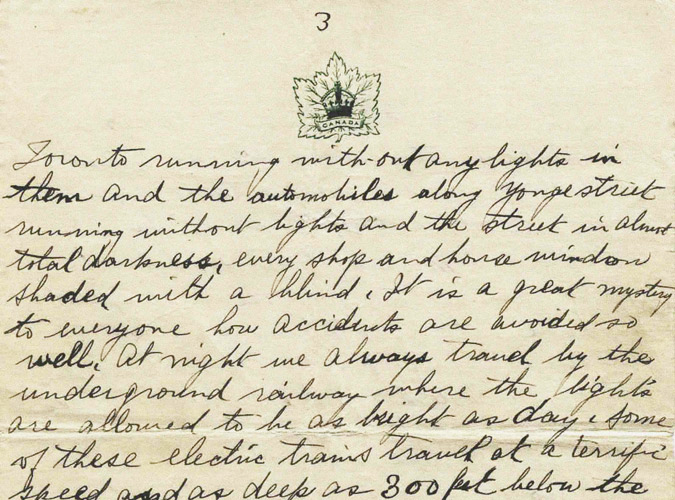 3
CANADA
Toronto running with-out any lights in
them and the automobiles along Yonge street
running without lights and the street in almost
total darkness, every shop and house window
shaded with a blind. It is a great mystery
to everyone how accidents are avoided so
well. At night we always travel by the
underground railway where the lights
are allowed to be as bright as day. Some
of these electric trains travel at a terrific
speed and as deep as 300 feet below the